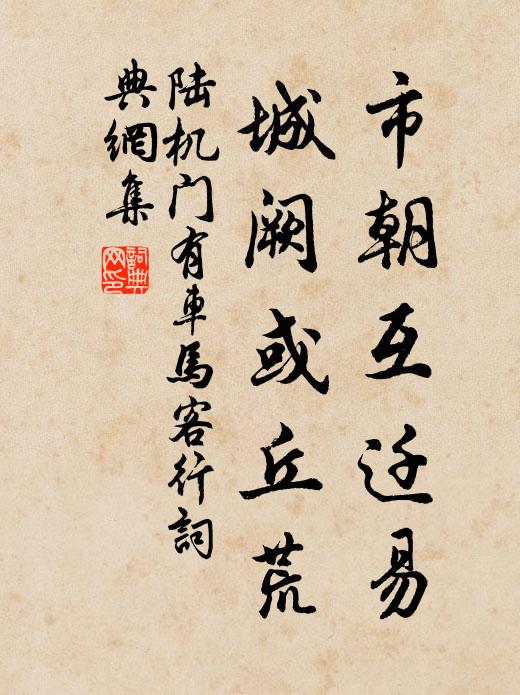 市朝互迁易
城阙或丘荒
陆机门有車馬客行詞
典網集
詞典网印